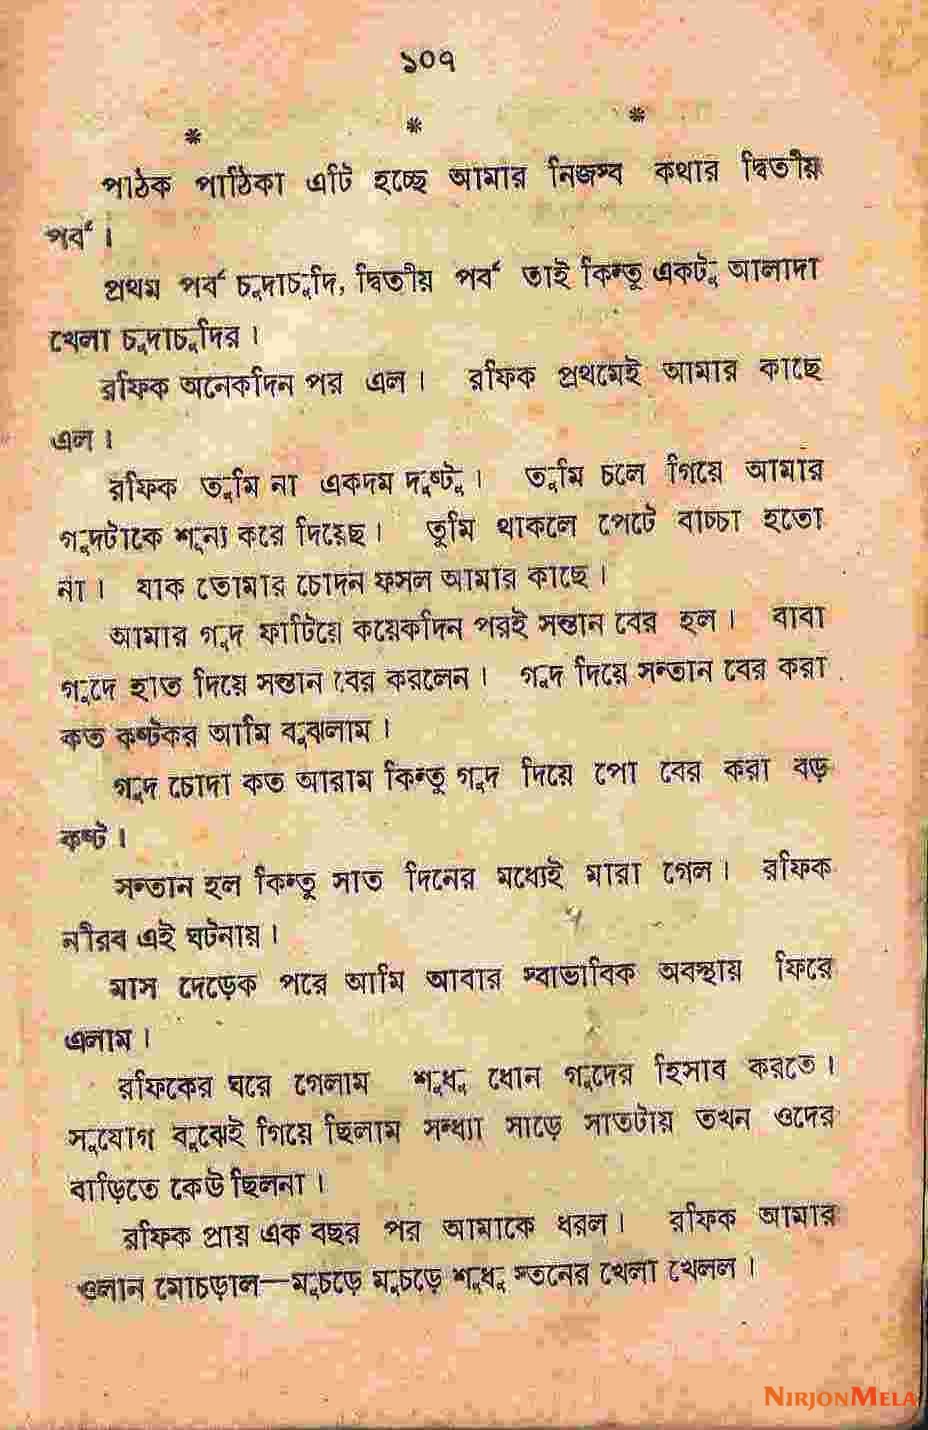 ১০৭
* * *
পাঠক পাঠিকা এটি হচ্ছে আমার নিজস্ব কথার দ্বিতীয়
পর্ব।
প্রথম পর্ব চুদাচুদি, দ্বিতীয় পর্ব তাই কিন্তু একটু আলাদা
খেলা চুদাচুদির।
রফিক অনেকদিন পর এল। রফিক প্রথমেই আমার কাছে
এল।
রফিক তুমি না একদম দুষ্টু। তুমি চলে গিয়ে আমার
গুদটাকে শূন্য করে দিয়েছ। তুমি থাকলে পেটে বাচ্চা হতো
না। যাক তোমার চোদন ফসল আমার কাছে।
আমার গুদ ফাটিয়ে কয়েকদিন পরই সন্তান বের হল। বাবা
গুদে হাত দিয়ে সন্তান বের করলেন। গুদ দিয়ে সন্তান বের করা
কত কষ্টকর আমি বুঝলাম।
গুদ চোদা কত আরাম কিন্তু গুদ দিয়ে পো বের করা বড়
কষ্ট।
সন্তান হল কিন্তু সাত দিনের মধ্যেই মারা গেল। রফিক
নীরব এই ঘটনায়।
মাস দেড়েক পরে আমি আবার স্বাভাবিক অবস্থায় ফিরে
এলাম।
রফিকের ঘরে গেলাম শুধু ধোন গুদের হিসাব করতে।
সুযোগ বুঝেই গিয়ে ছিলাম সন্ধ্যা সাড়ে সাতটায় তখন ওদের
বাড়িতে কেউ ছিলনা।
রফিক প্রায় এক বছর পর আমাকে ধরল। রফিক আমার
ওলান মোচড়াল—মুচড়ে মুচড়ে শুধু স্তনের খেলা খেলল।
NIRJONMELA